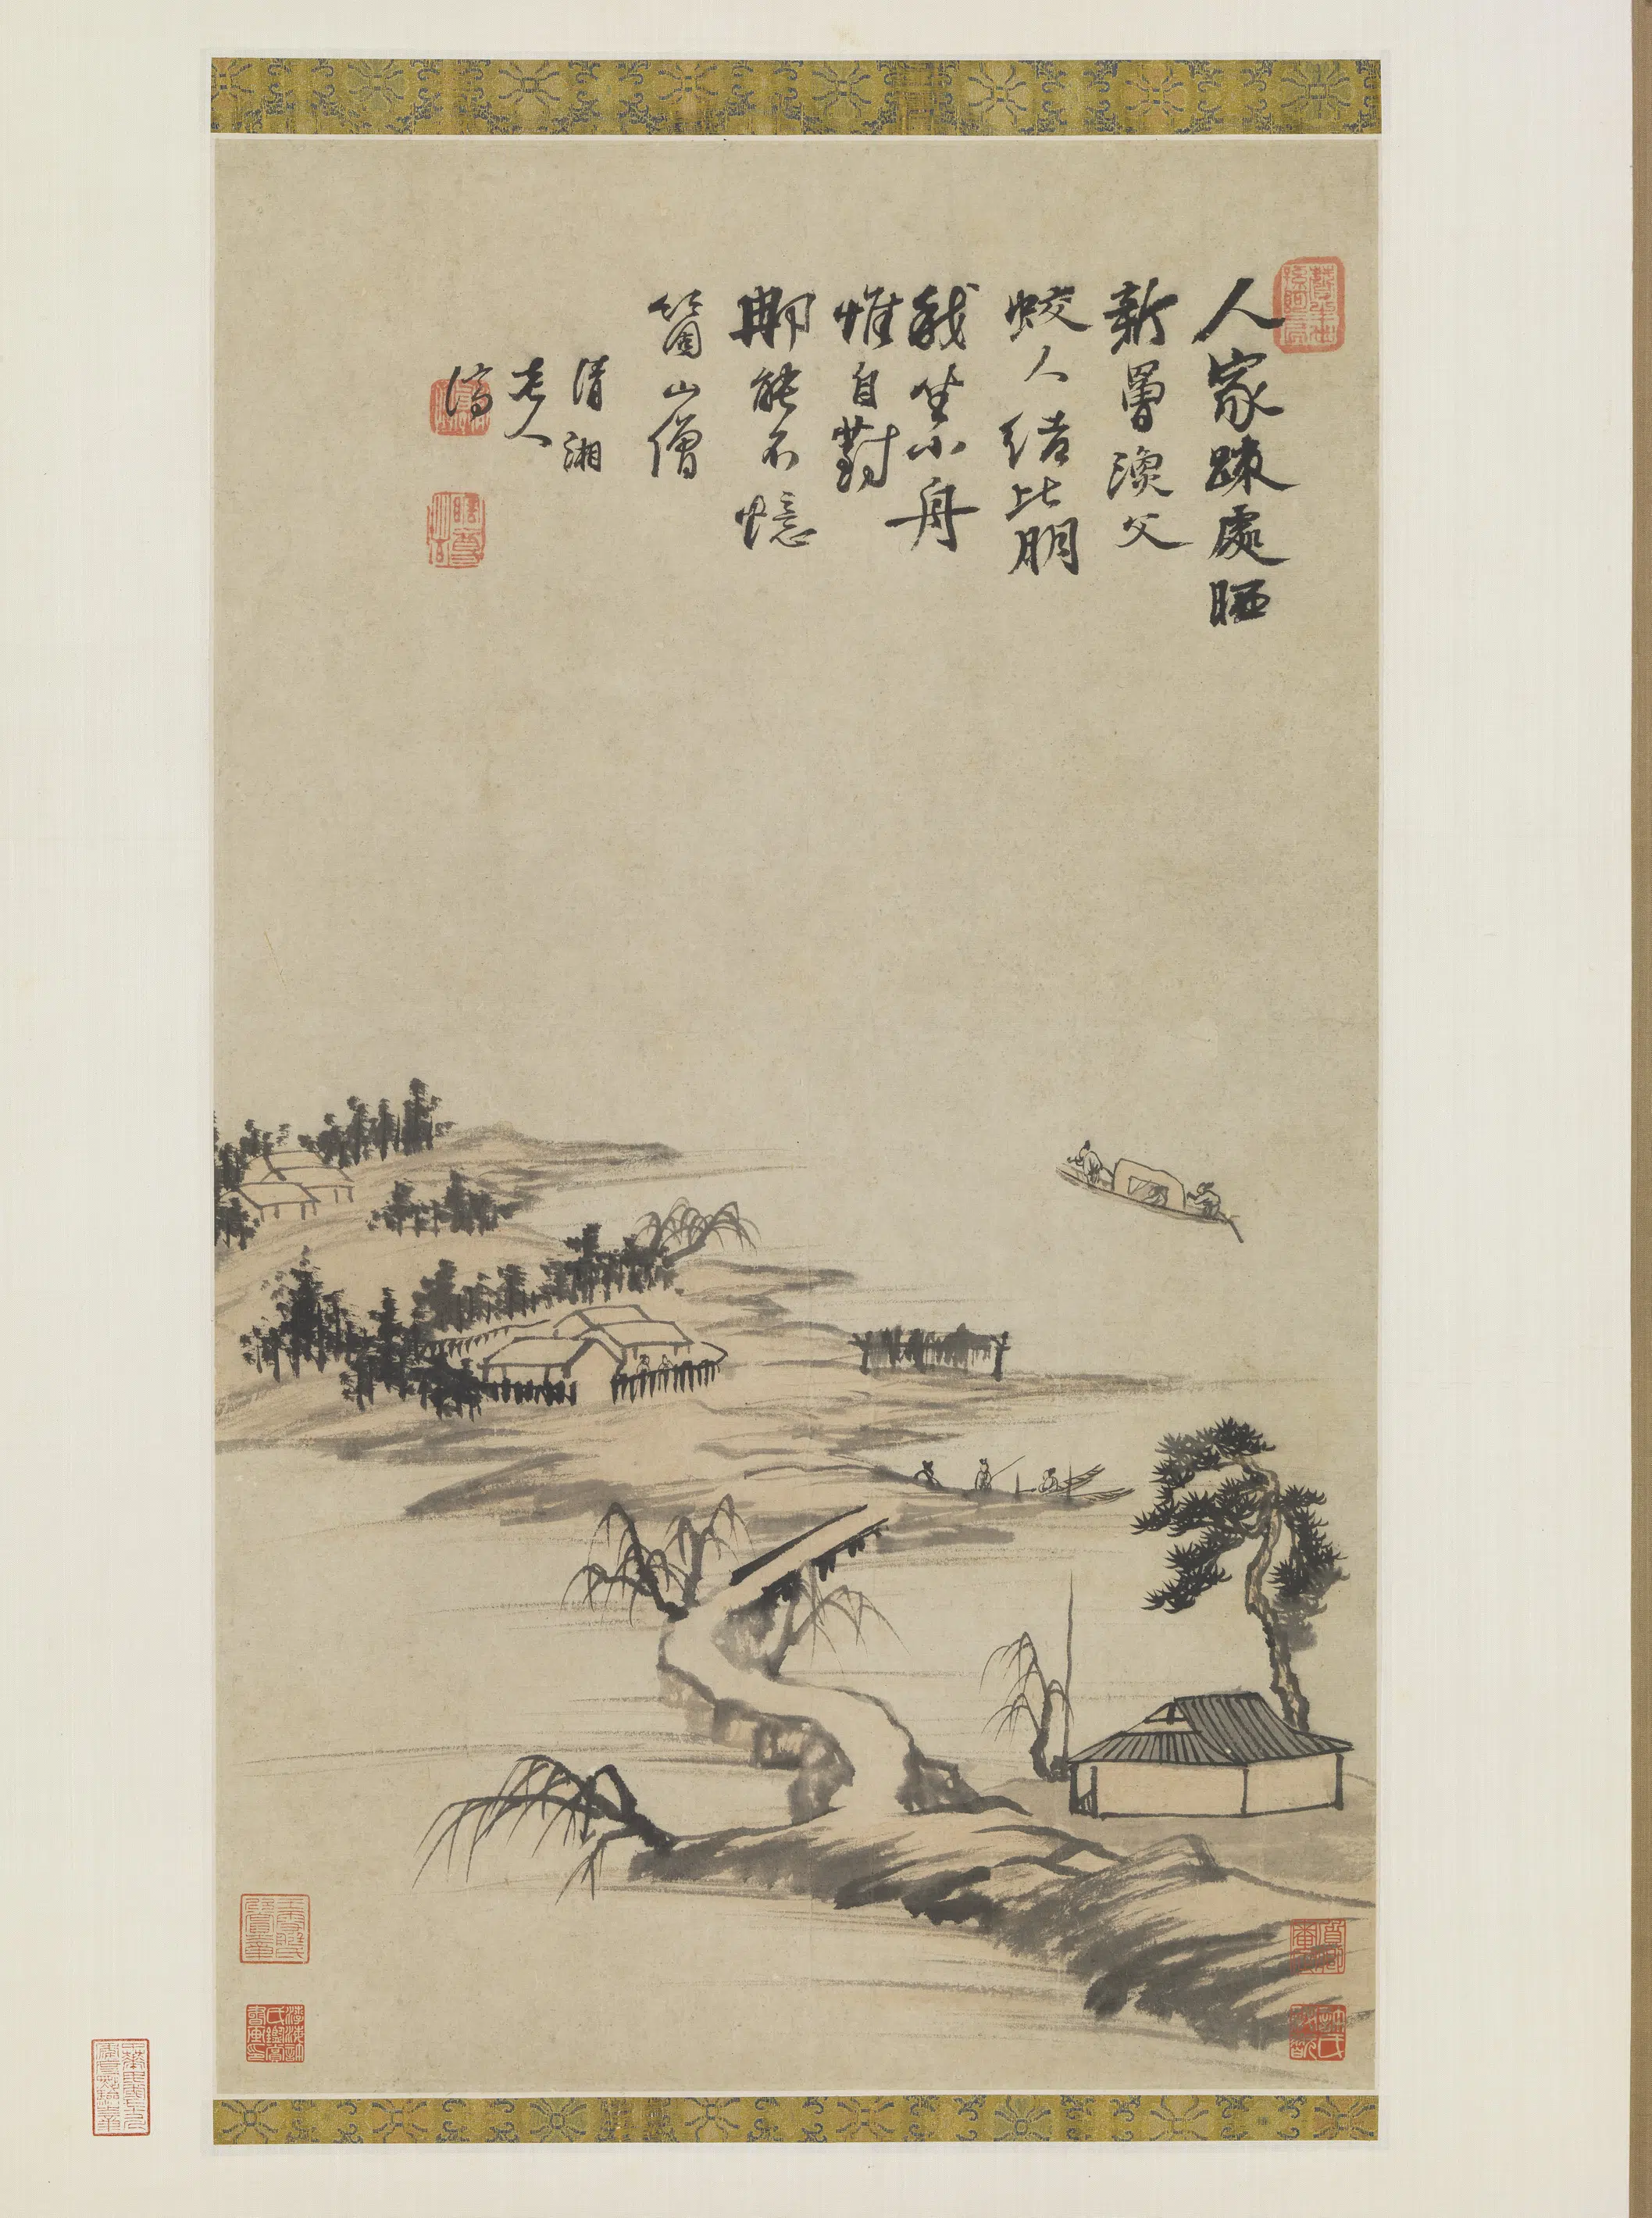 人家疎處晒
新罾漁父
蛟人結比朋
我坐小舟
惟自對
那能不憶
箇山僧
清湘
老人
濟